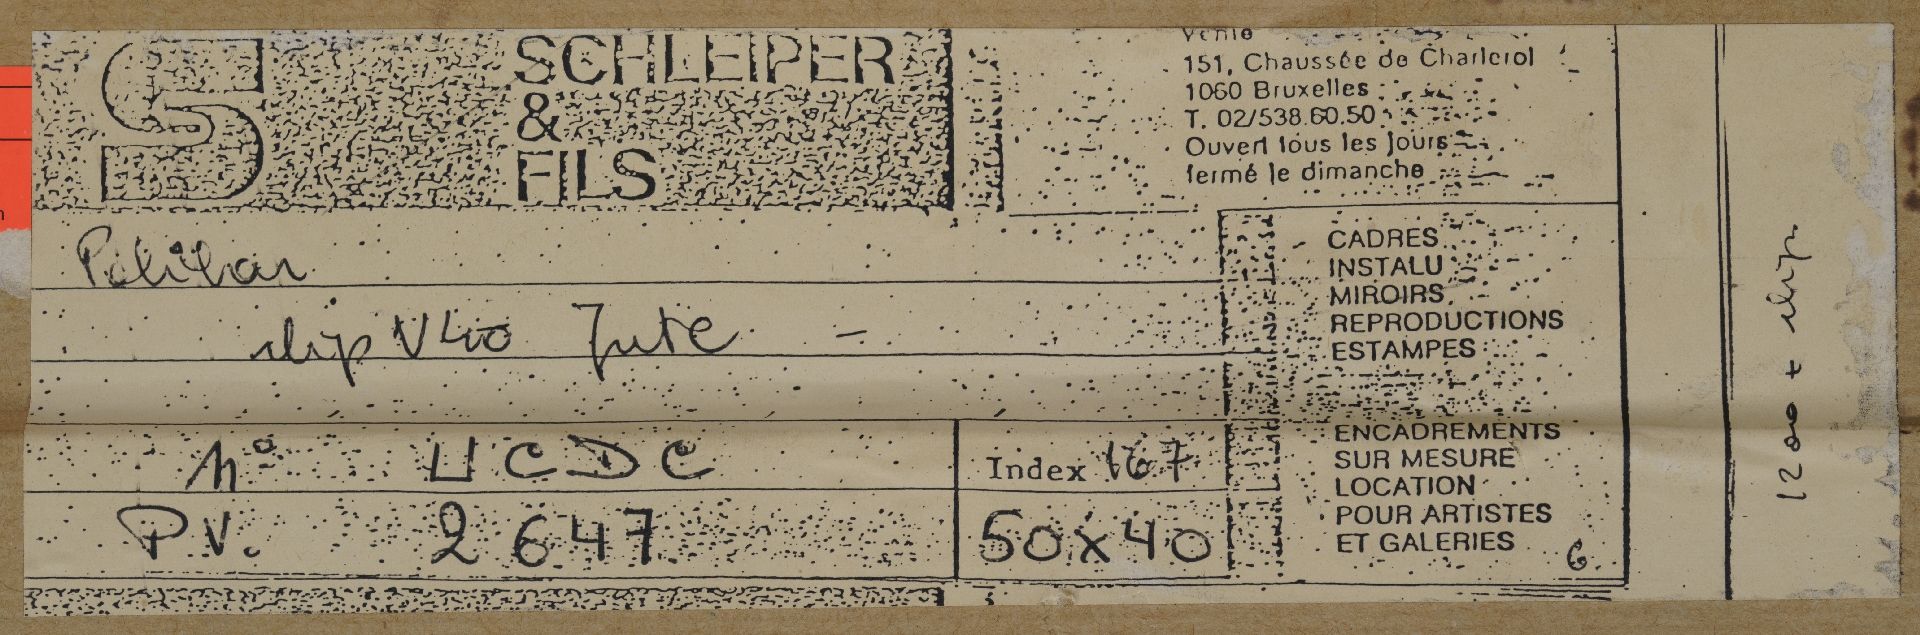 S
SCHLEIPER
&
FILS
151, Chaussée de Charleroi
1060 Bruxelles
T. 02/538.60.50
Ouvert tous les jours
fermé le dimanche
V40 Jute -
N° UCDC
Index 167
P.V. 2647
50x40
CADRES
INSTALU
MIROIRS
REPRODUCTIONS
ESTAMPES
ENCADREMENTS
SUR MESURE
LOCATION
POUR ARTISTES
ET GALERIES
6
1200 +